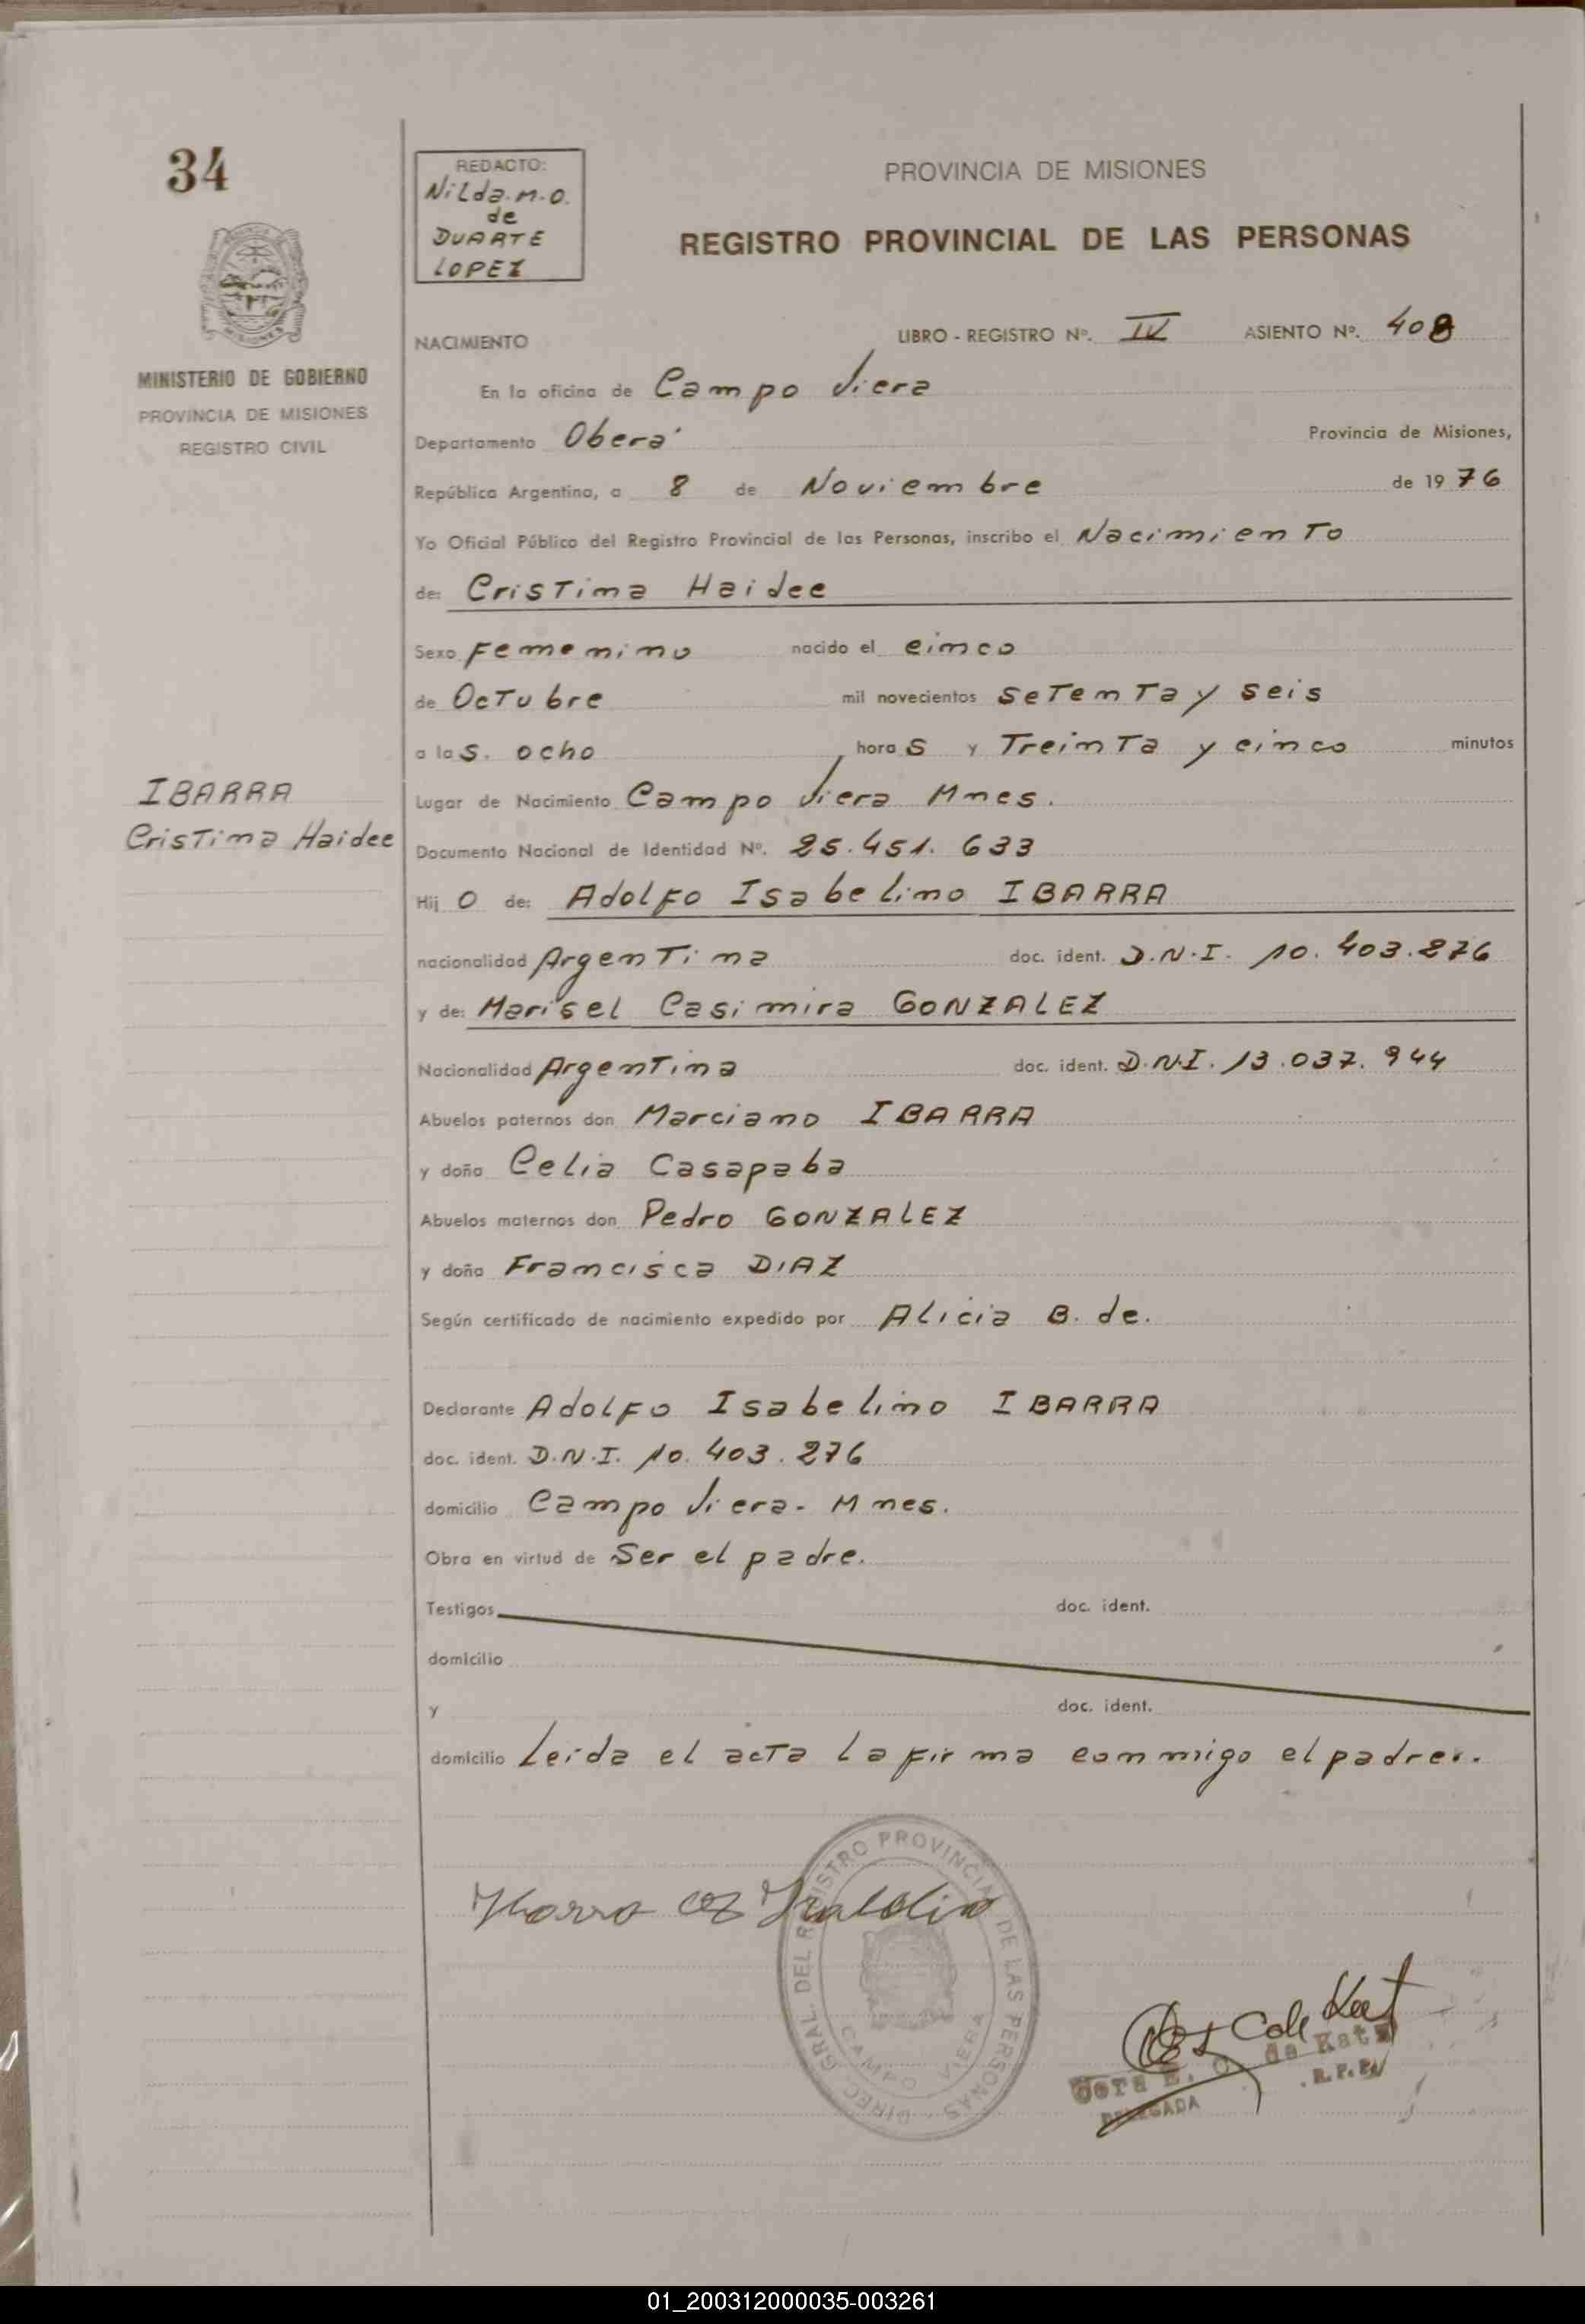 34
MINISTERIO DE GOBIERNO
PROVINCIA DE MISIONES
REGISTRO CIVIL
IBARRA
Cristina Haidee
REDACTO:
Nilda.M.O.
de
DUARTE
LOPEZ
PROVINCIA DE MISIONES
REGISTRO PROVINCIAL DE LAS PERSONAS
NACIMIENTO LIBRO - REGISTRO Nº. IV ASIENTO Nº. 408
En la oficina de Campo Viera
Departamento Oberá Provincia de Misiones,
República Argentina, a 8 de Noviembre de 1976
Yo Oficial Público del Registro Provincial de las Personas, inscribo el Nacimiento
de: Cristina Haidee
Sexo Femenino nacido el cinco
de Octubre mil novecientos setenta y seis
a las. ocho horas y Treinta y cinco minutos
Lugar de Nacimiento Campo Viera Mnes.
Documento Nacional de Identidad Nº. 25.451.633
Hij O de: Adolfo Isabelino IBARRA
nacionalidad Argentina doc. ident. D.N.I. 10.403.276
y de: Marisel Casimira GONZALEZ
Nacionalidad Argentina doc. ident. D.N.I. 13.037.944
Abuelos paternos don Marciano IBARRA
y doña Celia Casapaba
Abuelos maternos don Pedro GONZALEZ
y doña Francisca DIAZ
Según certificado de nacimiento expedido por Alicia B. de.
Declarante Adolfo Isabelino IBARRA
doc. ident. D.N.I. 10.403.276
domicilio Campo Viera- Mnes.
Obra en virtud de Ser el padre.
Testigos doc. ident.
domicilio
y doc. ident.
domicilio Leida el acta la firma conmigo el padre.
DIREC. GRAL. DEL REGISTRO PROVINCIAL DE LAS PERSONAS
CAMPO VIERA
de Katz
R.P.P.
DELEGADA
01_200312000035-003261